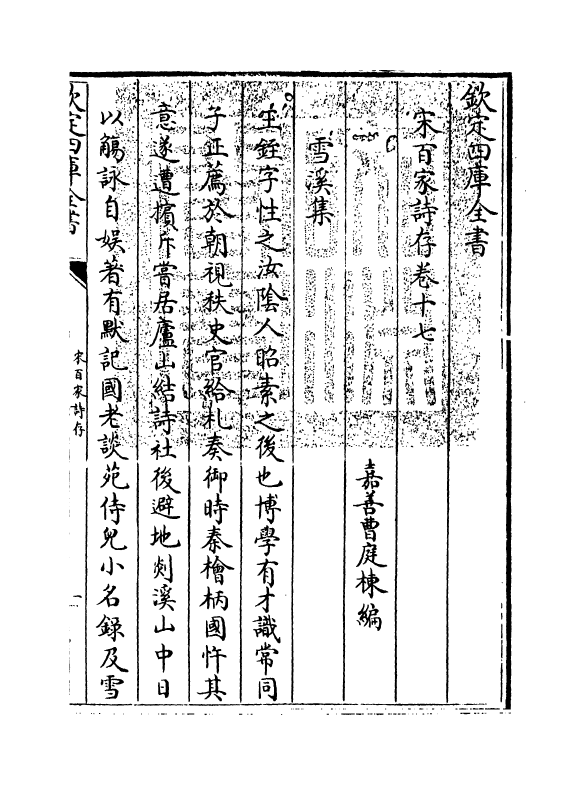 欽定四庫全書
宋百家詩存卷十七
嘉善曹庭棟編
雪溪集
王銍字性之汝陰人昭素之後也博學有才識常同
子正薦於朝視秩史官給札奏御時秦檜柄國忤其
意遂遭擯斥嘗居廬山結詩社後避地剡溪山中日
以觴詠自娛著有默記國老談苑侍兒小名錄及雪
欽定四庫全書
宋百家詩存
一